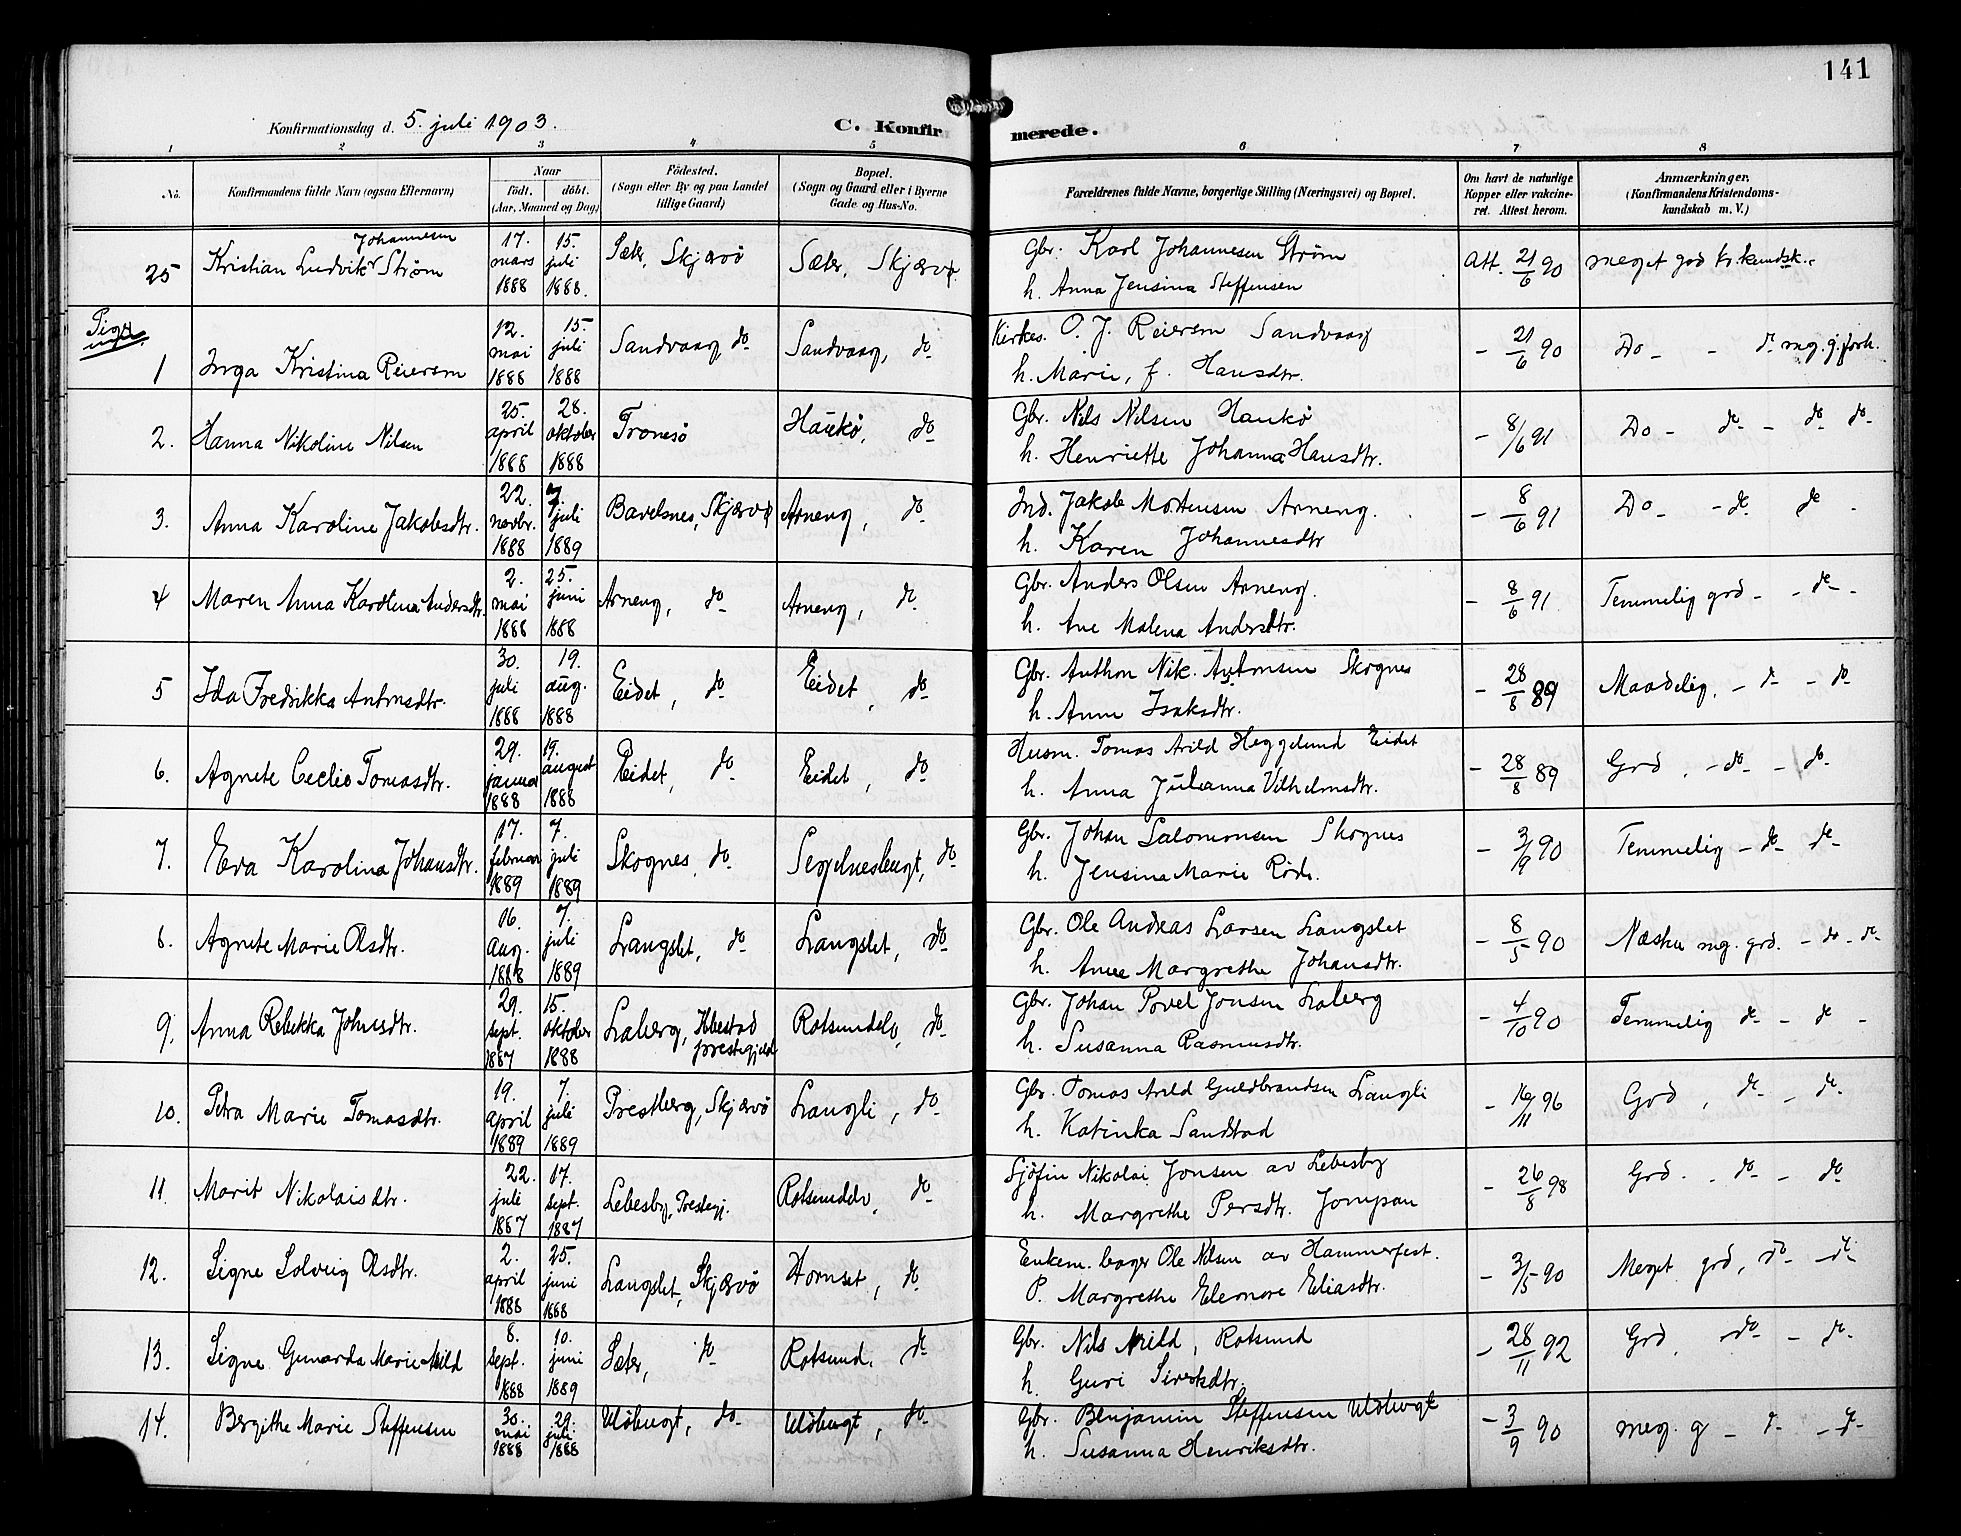 141
Konfirmationsdag d. 5. juli 1903.
C. Konfirmerede.
1 2 3 4 5 6 7 8
No.
Konfirmandens fulde Navn (ogsaa Efternavn)
Naar
født. døbt.
(Aar, Maaned og Dag)
Fødested.
(Sogn eller By og paa Landet
tillige Gaard)
Bopæl.
(Sogn og Gaard eller i Byerne
Gade og Hus-No.
Forældrenes fulde Navne, borgerlige Stilling (Næringsvei) og Bopæl.
Om havt de naturlige
Kopper eller vakcine-
ret. Attest herom.
Anmærkninger.
(Konfirmandens Kristendoms-
kundskab m. V.)
25 Kristian Ludvik Johannesen Strøm 17. mars 1888 15. juli 1888. Sæter, Skjærvø Sæter, Skjærvø.
Gbr. Karl Johannesen Strøm
h. Anna Jensina Steffensen
Att. 21/6 90 meget god kr.kundsk.
Piger
1 Inga Kristina Reiersen 12. mai 1888 15. juli 1888 Sandvaag do Sandvaag, do
Kirkes. O. J. Reiersen Sandvaag
h. Marie, f. Hansdtr.
- 21/6 90 Do - - do mg. g. forh.
2. Hanna Nikoline Nilsen 25. april 1888 28. oktober 1888 Tromsø Haukø, do
Gbr. Nils Nilsen Haukø
h. Henriette Johanna Hansdtr.
- 8/6 91 Do - do - do do
3. Anna Karoline Jakobsdtr. 22. novbr. 1888 7. juli 1889 Bavelsnes, Skjærvø Arneng, do
Ind. Jakob Mortensen Arneng.
h. Karen Johannesdtr
- 8/6 91 Do - - do do -
4 Maren Anna Karolina Andersdtr. 2. mai 1888 25. juni 1888 Arneng, do Arneng, do
Gbr. Anders Olsen Arneng.
h. Ane Malena Andersdtr.
- 8/6 91. Temmelig god - - do -
5 Ida Fredrikka Antonsdtr. 30. juli 1888 19. aug. 1888 Eidet, do Eidet, do
Gbr. Anthon Nik. Antonsen Skognes
h. Anne Isaksdtr.
- 28/8 89 Maadelig. - do - do
6. Agnete Cecilie Tomasdtr. 29. januar 1888 19. august 1888 Eidet, do Eidet, do
Husm. Tomas Arild Heggelund Eidet
h. Anna Julianna Vilhelmsdtr.
- 28/8 89 God, - do - do
7. Eva Karolina Johansdtr. 17. februar 1889 7. juli 1889 Skognes, do Segelnesbugt, do
Gbr. Johan Salomonsen Skognes
h. Jensina Marie Røde.
- 3/9 90 Temmelig - do - do
8. Agnete Marie Olsdtr. 16. aug. 1888 7. juli 1889 Langslet, do Langslet, do
Gbr. Ole Andreas Larsen Langslet
h. Anne Margrethe Johansdtr.
- 8/5 90 Næsten mg. god. - do - do
9. Anna Rebekka Johnsdtr. 29. sept. 1887 15. oktober 1888 Laberg, Ibestad prestegjeld Rotsundelv, do
Gbr. Johan Povel Jonsen Laberg
h. Susanna Rasmusdtr.
- 4/10 90 Temmelig do - do -
10. Petra Marie Tomasdtr. 19. april 1889 7. juli 1889 Prestberg, Skjærvø Langli, do
Gbr. Tomas Arild Guldbrandsen Langli
h. Katinka Sandstad
- 16/11 96 God, do - do
11. Marit Nikolaisdtr. 22. juli 1887 17. sept. 1887 Lebesby, Prestegj. Rotsundelv, do
Sjøfin Nikolai Jonsen av Lebesby
h. Margrethe Persdtr. Jompan
- 26/8 98 God. - do - do
12. Signe Solveig Olsdtr. 2. april 1888 25. juni 1888 Langslet, Skjærvø Hornset, do
Enkem. bager Ole Nilsen av Hammerfest.
P. Margrethe Elenore Eliasdtr.
- 3/5 90 Meget god, do - do
13. Signe Gunarda Marie Arild 8. sept. 1888 10. juni 1889 Sæter, do Rotsund. do
Gbr. Nils Arild, Rotsund
h. Guri Sivertsdtr.
- 28/11 92 God, do - do
14. Bergithe Marie Steffensen 30. mai 1888 29. juli 1888 Uløbugt, do Uløbugt, do
Gbr. Benjamin Steffensen Uløbugt
h. Susanna Henriksdtr.
- 3/9 90 meg. g - do - do